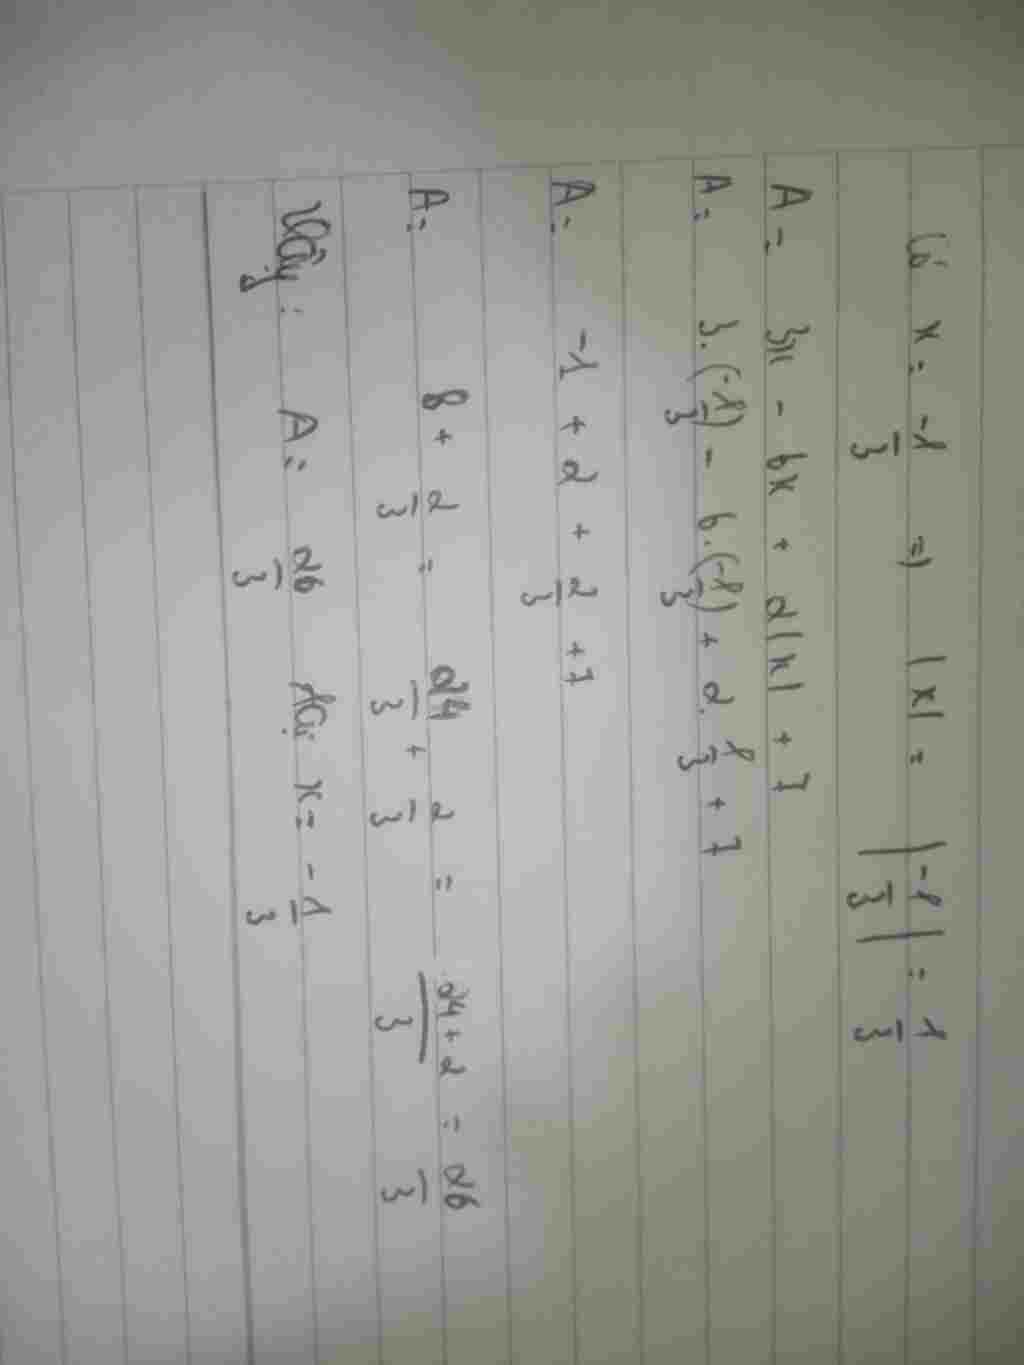 Có x = -1/3 => |x| = |-1/3| = 1/3
A = 3x - 6x + 2|x| + 7
A = 3.(-1/3) - 6.(-1/3) + 2.1/3 + 7
A = -1 + 2 + 2/3 + 7
A = 8 + 2/3 = 24/3 + 2/3 = 24+2/3 = 26/3
Vậy : A = 26/3 tại x = -1/3